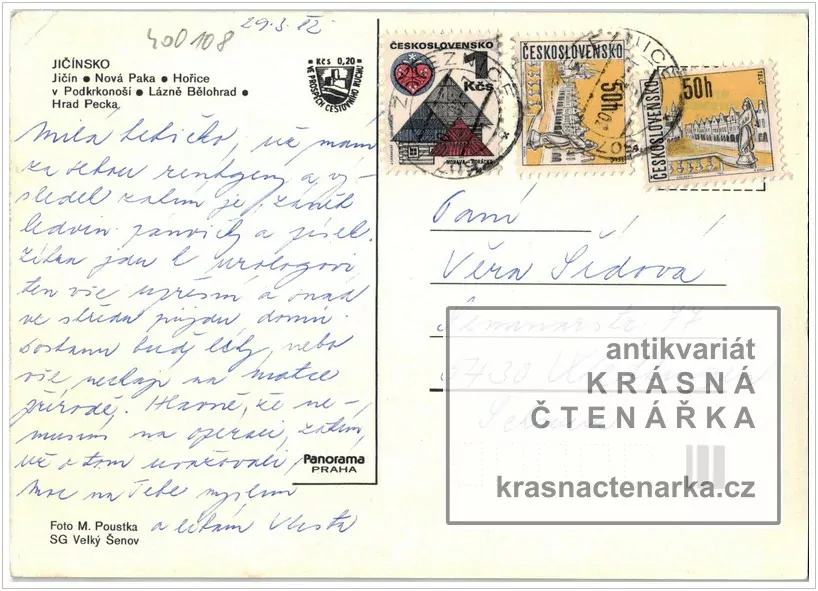 29.3.82
400108
JIČÍNSKO
Jičín ● Nová Paka ● Hořice
v Podkrkonoší ● Lázně Bělohrad ●
Hrad Pecka
● Kčs 0,20 ●
VE PROSPĚCH CESTOVNÍHO RUCHU
ČESKOSLOVENSKO
1
Kčs
MORAVA - HORÁCKO
ČESKOSLOVENSKO
50h
TELČ
ČESKOSLOVENSKO
50h
TELČ
Milá tetičko, už mám
za sebou rentgen a vý-
sledek zatím je, zánět
ledvin. pánvičky a písek.
Zítra jdu k urologovi,
ten vše upřesní a snad
ve středu půjdu domů.
Dostanu buď léky, nebo
vše nechají na matce
přírodě. Hlavně, že ne-
musím na operaci, zatím,
už o tom uvažovali,
Moc na Tebe myslím
a líbám Vlasta
Paní
Věra Šídová
77
antikvariát
KRÁSNÁ
ČTENÁŘKA
krasnactenarka.cz
Panorama
PRAHA
Foto M. Poustka
SG Velký Šenov